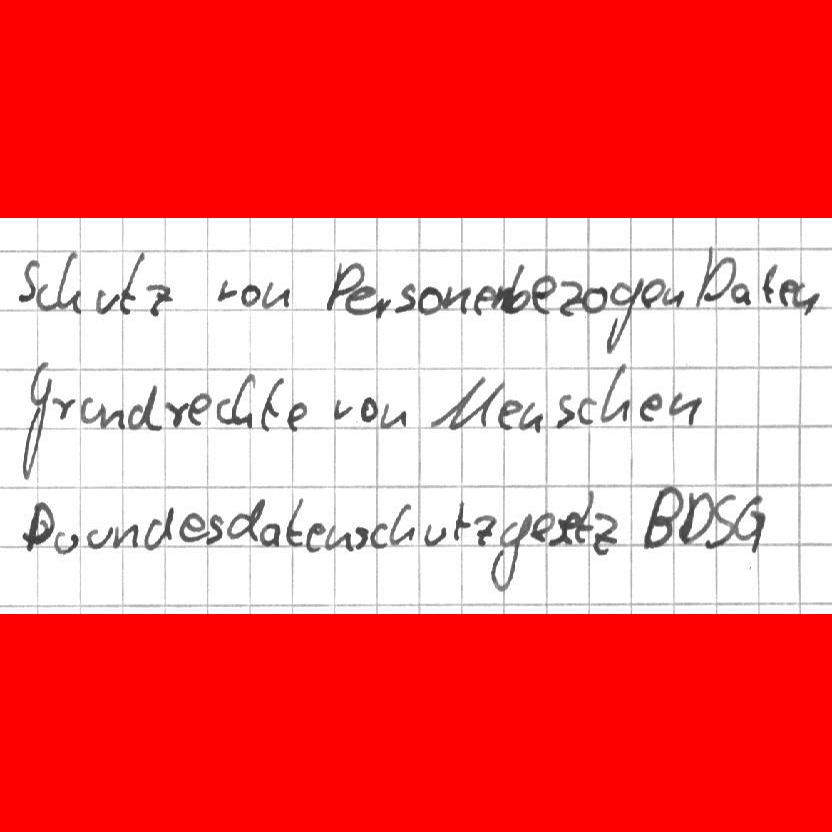 Schutz von Personenbezogen Daten
Grundrechte von Menschen
Boundesdatenschutzgesetz BDSG